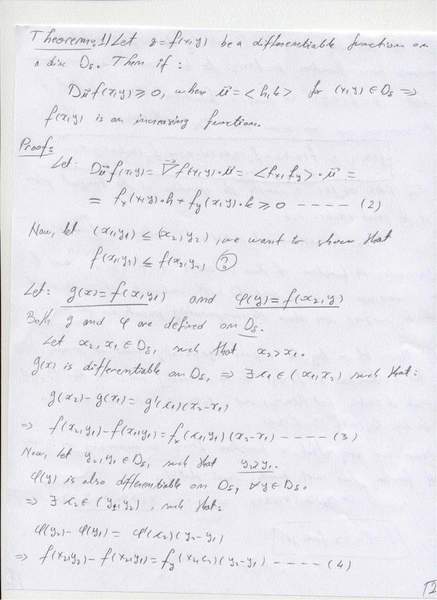 Theorem: 1) Let z = f(x,y) be a differentiable function on
a disc Dδ. Then if:
Dū f(x,y) ≥ 0, where ū = <h,k> for (x,y) ∈ Dδ ⇒
f(x,y) is an increasing function.
Proof:
Let: Dū f(x,y) = ∇f(x,y) • ū = <fx, fy> • ū =
= fx(x,y)•h + fy(x,y)•k ≥ 0 ---- (2)
Now, let (x1,y1) ≤ (x2,y2), we want to show that
f(x1,y1) ≤ f(x2,y2) ?
Let: g(x) = f(x,y1) and φ(y) = f(x2,y)
Both g and φ are defined on Dδ.
Let x2, x1 ∈ Dδ, such that x2 > x1.
g(x) is differentiable on Dδ, ⇒ ∃ c1 ∈ (x1,x2) such that:
g(x2) - g(x1) = g'(c1)(x2-x1)
⇒ f(x2,y1) - f(x1,y1) = fx(c1,y1)(x2-x1) ---- (3)
Now, let y2, y1 ∈ Dδ, such that y2 ≥ y1.
φ(y) is also differentiable on Dδ, ∀y ∈ Dδ.
⇒ ∃ c2 ∈ (y1,y2), such that:
φ(y2) - φ(y1) = φ'(c2)(y2-y1)
⇒ f(x2,y2) - f(x2,y1) = fy(x2,c2)(y2-y1) ---- (4)